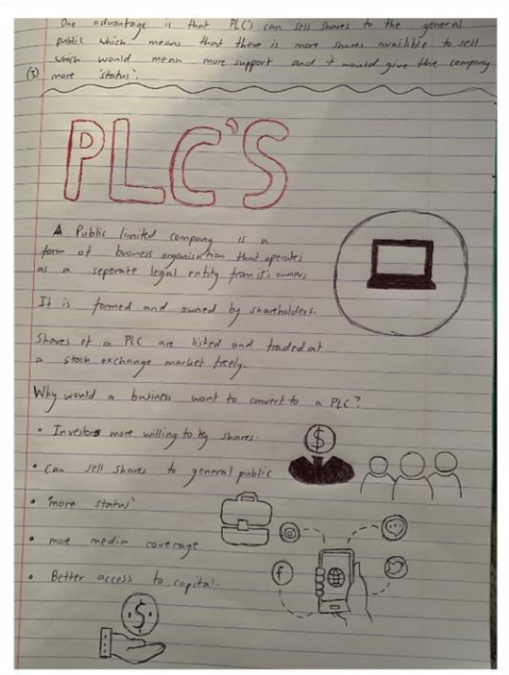 One advantage is that PLC's can sell shares to the general
public which means that there is more shares availible to sell
which would mean more support and it would give the company
(3) more 'status'.
PLC'S
A Public limited company is a
form of business organisation that operates
as a seperate legal entity from it's owners
It is formed and owned by shareholders.
Shares of a PLC are listed and traded at
a stock exchange market freely.
Why would a business want to convert to a PLC?
• Investors more willing to shares.
$
• Can sell shares to general public
• 'more status'
• more media coverage
f
• Better access to capital.
$